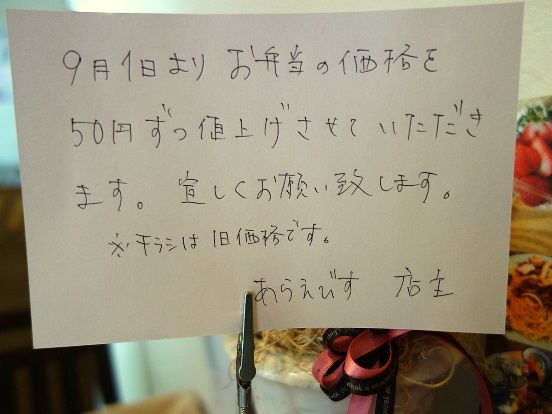 9月1日より お弁当の価格を
50円ずつ値上げさせていただき
ます。宜しくお願い致します。
※チラシは旧価格です。
あらえびす 店主